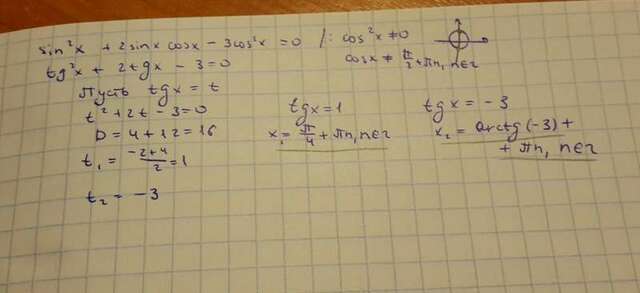 sin²x + 2sinx cosx - 3cos²x = 0 /: cos²x ≠ 0
cosx ≠ π/2 + πn, n∈z
tg²x + 2tgx - 3 = 0
Пусть tgx = t
t² + 2t - 3 = 0
D = 4 + 12 = 16
t₁ = (-2+4)/2 = 1
t₂ = -3
tgx = 1
x₁ = π/4 + πn, n∈z
tgx = -3
x₂ = arctg(-3) +
+ πn, n∈z